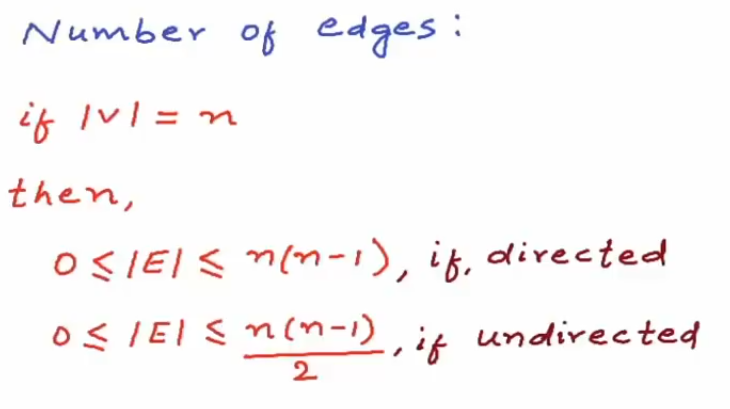 Number of edges:
if |V| = n
then,
0 ≤ |E| ≤ n(n-1), if, directed
0 ≤ |E| ≤ n(n-1)/2, if undirected